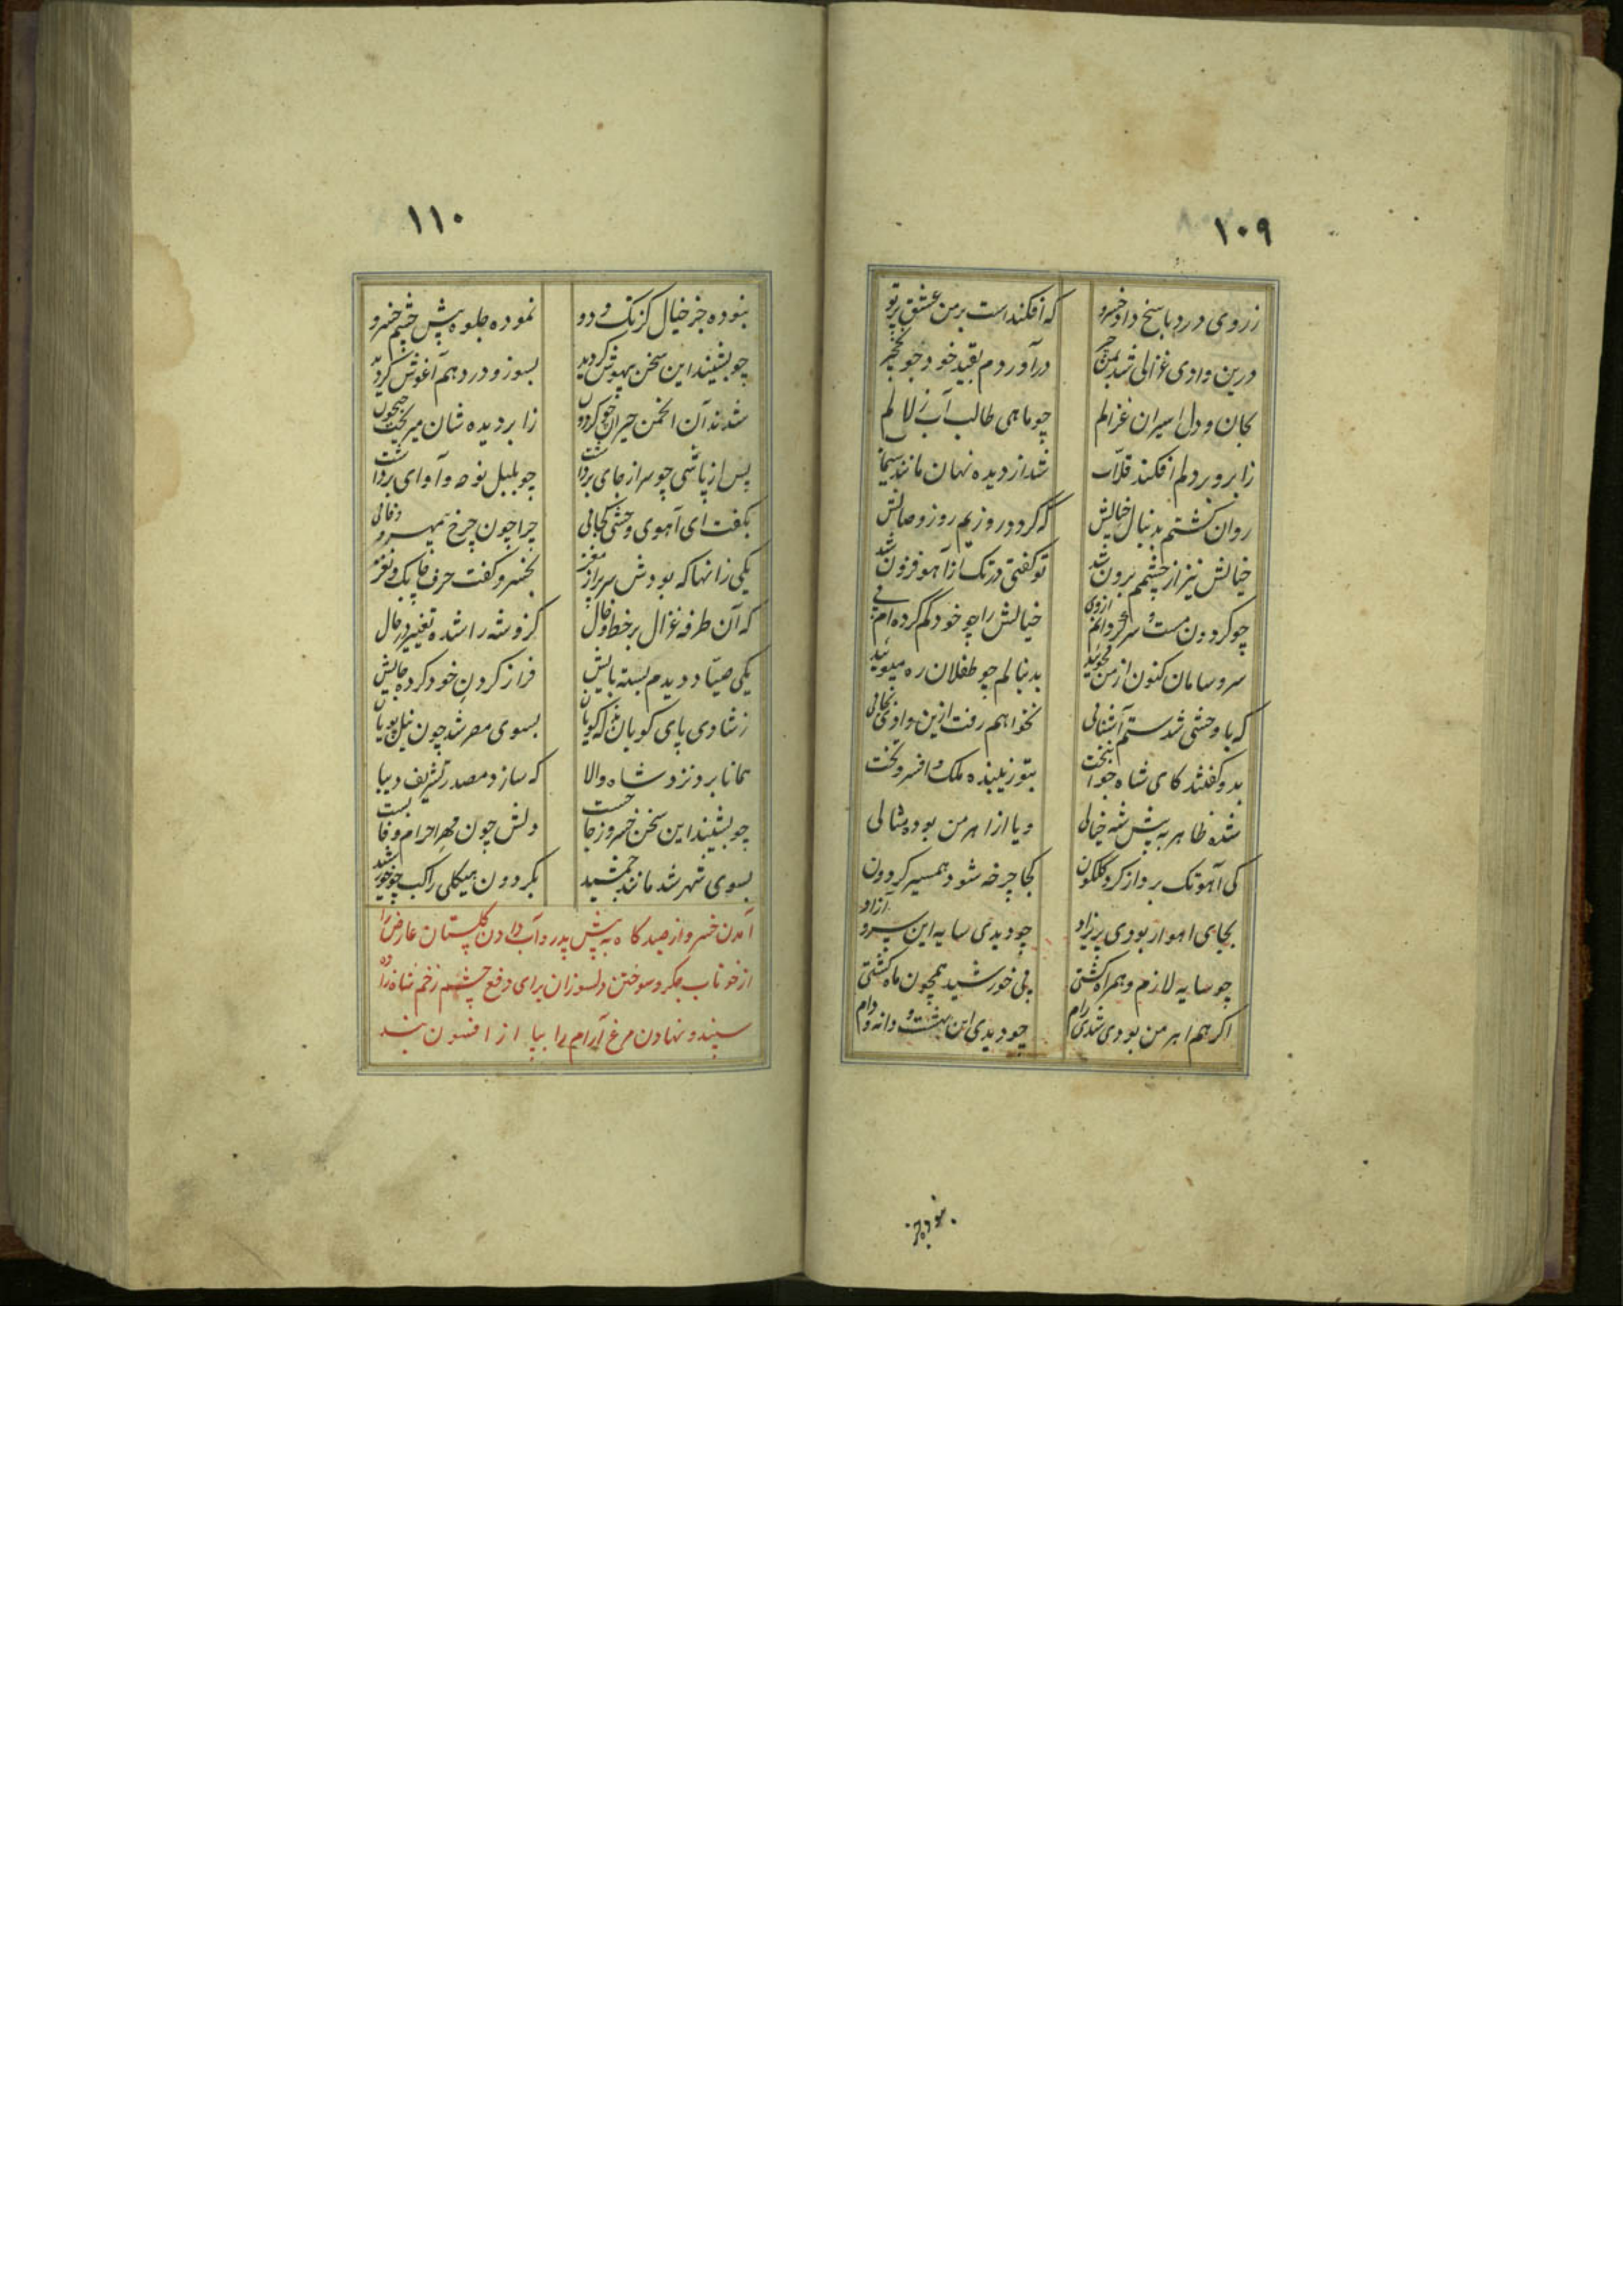 ۱۰۹
ز روی درد پاسخ داد خسرو که افکند است بر من عشق پرتو
درین وادی غزالی شد بمن درآوردم بقید خود چو نخچیر
بجان و دل اسیران غزالم چو ماهی طالب آب زلالم
ز ابرو بر دلم افکند قلاب شد از دیده نهان مانند سیماب
روان گشتم بدنبال خیالش که گردد روزیم روز وصالش
خیالش نیز از چشمم برون شد تو گفتی در تک از آهو فزون شد
چو گردون مست و سرگردانم از وی خیالش را چو خود گم کرده ام پی
سر و سامان کنون از من مجوئید بدنبالم چو طفلان ره مپوئید
که با وحشی شدستم آشنائی نخواهم رفت ازین وادی بجائی
بدو گفتند کای شاه جوانبخت بتو زیبنده ملک و افسر و تخت
شده ظاهر به پیش شه خیالی و یا از اهرمن بوده مثالی
کی آهو تک بر داز کرد گلگون کجا چرخه شود همسیر گردون
بجای اهو ار بودی پریزاد چو دیدی سایه این سرو آزاد
چو سایه لازم و همراه گشتی پی خورشید همچون ماه گشتی
اگر هم اهرمن بودی شدی رام چو دیدی این بهشت و دانه و دام
نبوده جز
۱۱۰
نبوده جز خیال کز تک و دو نموده جلوه پیش چشم خسرو
چو بشنید این سخن بیهوش گردید بسوز و درد هم آغوش گردید
شدند آن انجمن حیران چو گردون ز ابر دیده شان میریخت جیحون
پس از پاسی چو سر از جای برداشت چو بلبل نوحه و آوای برداشت
بگفت ای آهوی وحشی کجائی چرا چون چرخ بیمهر و وفائی
یکی زانها که بودش سر پر از مغز بخسرو گفت حرف چابک و نغز
که آن طرفه غزال پر خط و خال کزو شه را شده تغییر در حال
یکی صیاد دیدم بسته پایش فراز گردن خود کرده جایش
ز شادی پای کوبان بسوی مصر شد چون نیل پویان
همانا برد نزد شاه والا که سازد مصدر تشریف دیبا
چو بشنید این سخن خسرو ز جا جست دلش چون مهر احرام وفا بست
بسوی شهر شد مانند جمشید بگردون هیکلی راکب چو خورشید
آمدن خسرو از صید گاه به پیش پدر و آب دادن گلستان عارض را
از خوناب جگر و سوختن دلسوزان برای دفع چشم زخم شاه زاده
سپند و نهادن مرغ آرام را بپا از افسون بند